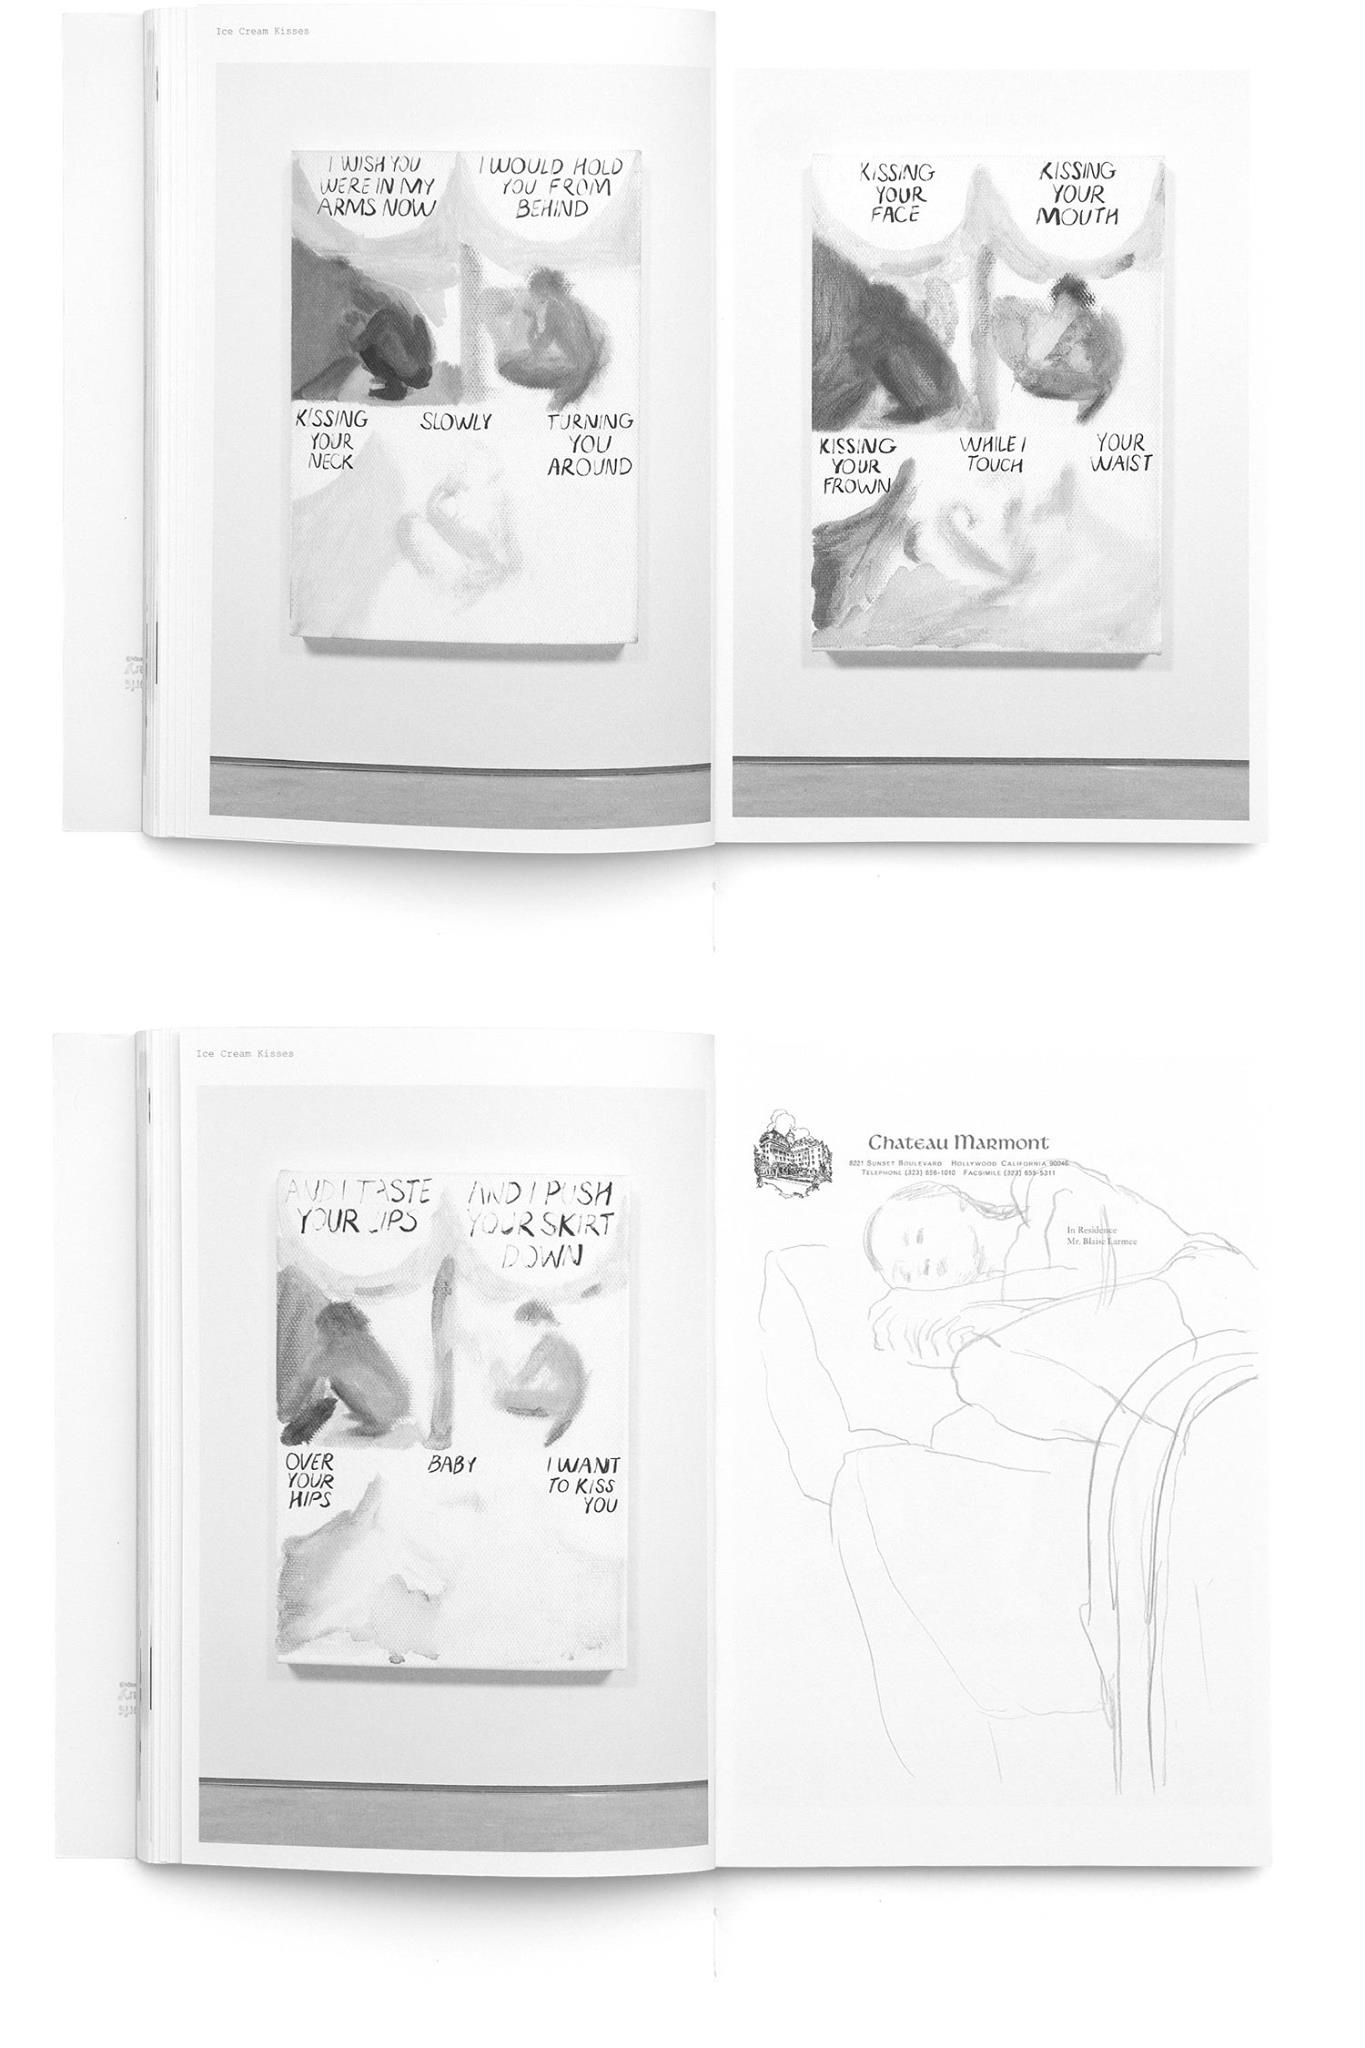 Ice Cream Kisses
I WISH YOU
WERE IN MY
ARMS NOW
I WOULD HOLD
YOU FROM
BEHIND
KISSING
YOUR
NECK
SLOWLY
TURNING
YOU
AROUND
KISSING
YOUR
FACE
KISSING
YOUR
MOUTH
KISSING
YOUR
FROWN
WHILE I
TOUCH
YOUR
WAIST
Ice Cream Kisses
AND I TASTE
YOUR LIPS
AND I PUSH
YOUR SKIRT
DOWN
OVER
YOUR
HIPS
BABY
I WANT
TO KISS
YOU
Chateau Marmont
8221 Sunset Boulevard Hollywood California 90046
Telephone (323) 656-1010 Facsimile (323) 655-5311
In Residence
Mr. Blaise Larmee